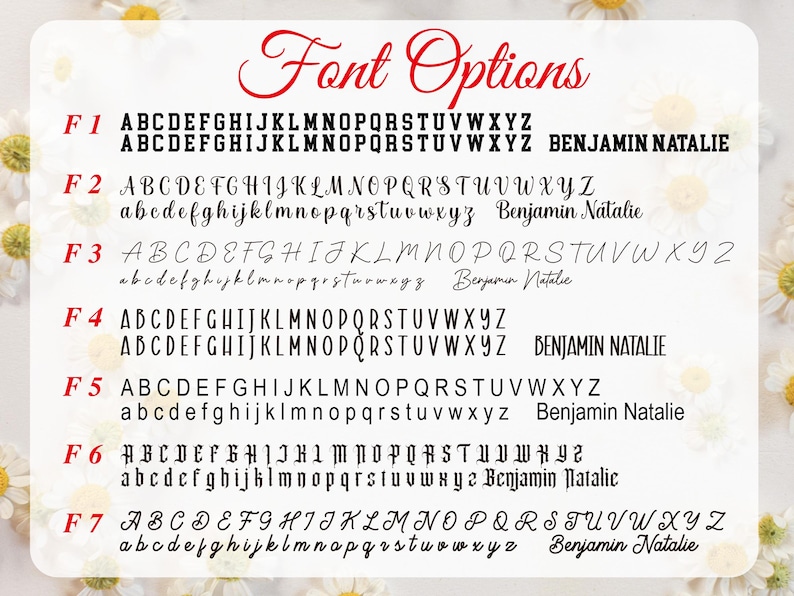 Font Options
F 1 ABCDEFGHIJKLMNOPQRSTUVWXYZ
ABCDEFGHIJKLMNOPQRSTUVWXYZ BENJAMIN NATALIE
F 2 ABCDEFGHIJKLMNOPQRSTUVWXYZ
abcdefghijklmnopqrstuvwxyz Benjamin Natalie
F 3 ABCDEFGHIJKLMNOPQRSTUVWXYZ
abcdefghijklmnopqrstuvwxyz Benjamin Natalie
F 4 ABCDEFGHIJKLMNOPQRSTUVWXYZ
ABCDEFGHIJKLMNOPQRSTUVWXYZ BENJAMIN NATALIE
F 5 ABCDEFGHIJKLMNOPQRSTUVWXYZ
abcdefghijklmnopqrstuvwxyz Benjamin Natalie
F 6 ABCDEFGHIJKLMNOPQRSTUVWXYZ
abcdefghijklmnopqrstuvwxyz Benjamin Natalie
F 7 ABCDEFGHIJKLMNOPQRSTUVWXYZ
abcdefghijklmnopqrstuvwxyz Benjamin Natalie